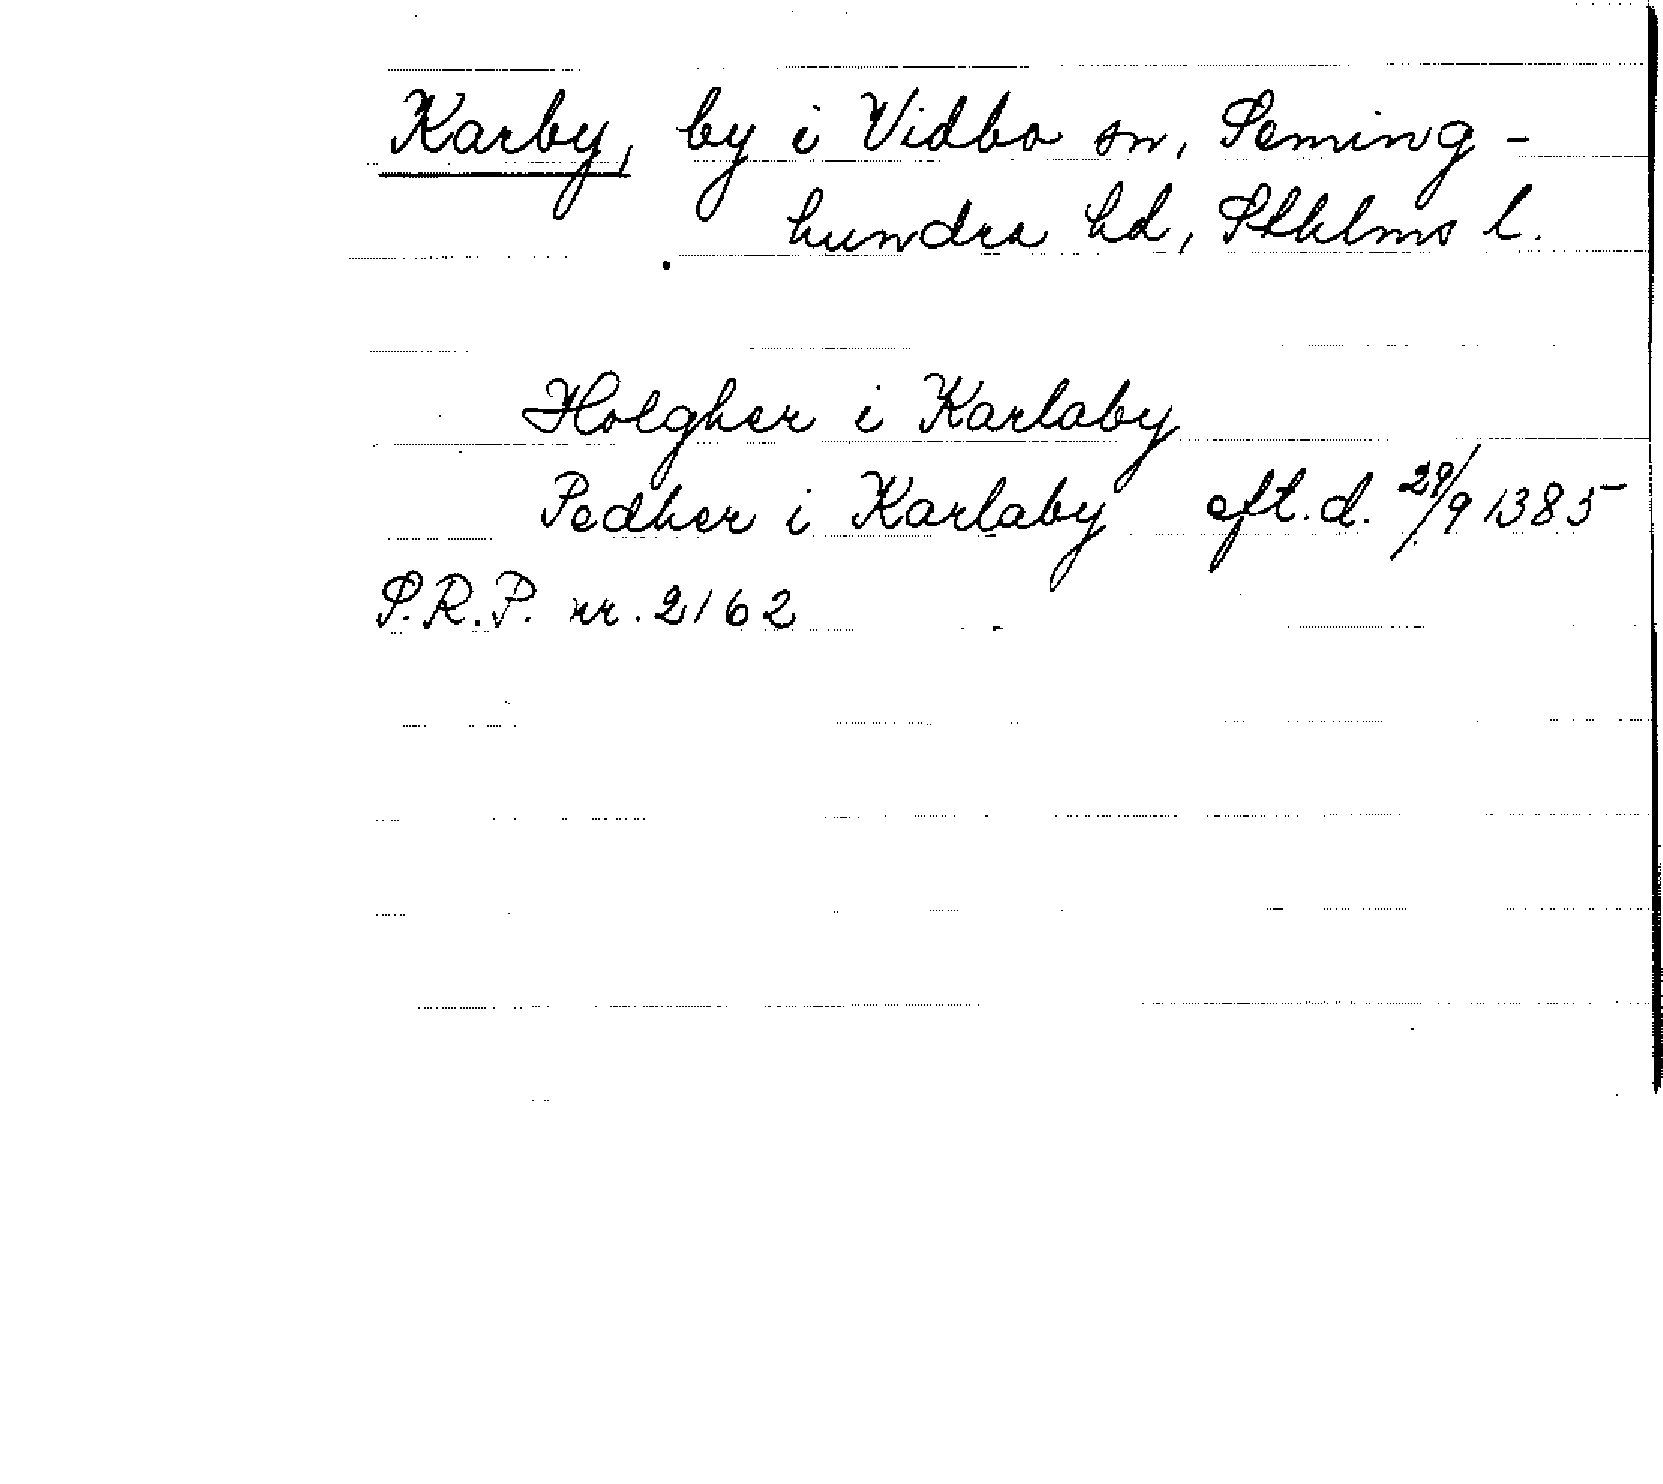 Karby, by i Vidbo sn, Seming-
hundra hd, Sthlms l.
Holgher i Karlaby
Pedher i Karlaby eft. d. 29/9 1385
S.R.P. nr. 2162